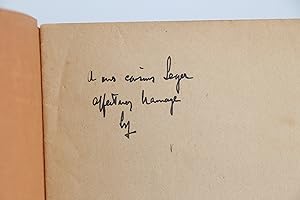 A mes cousins Leger
affectueux hommage